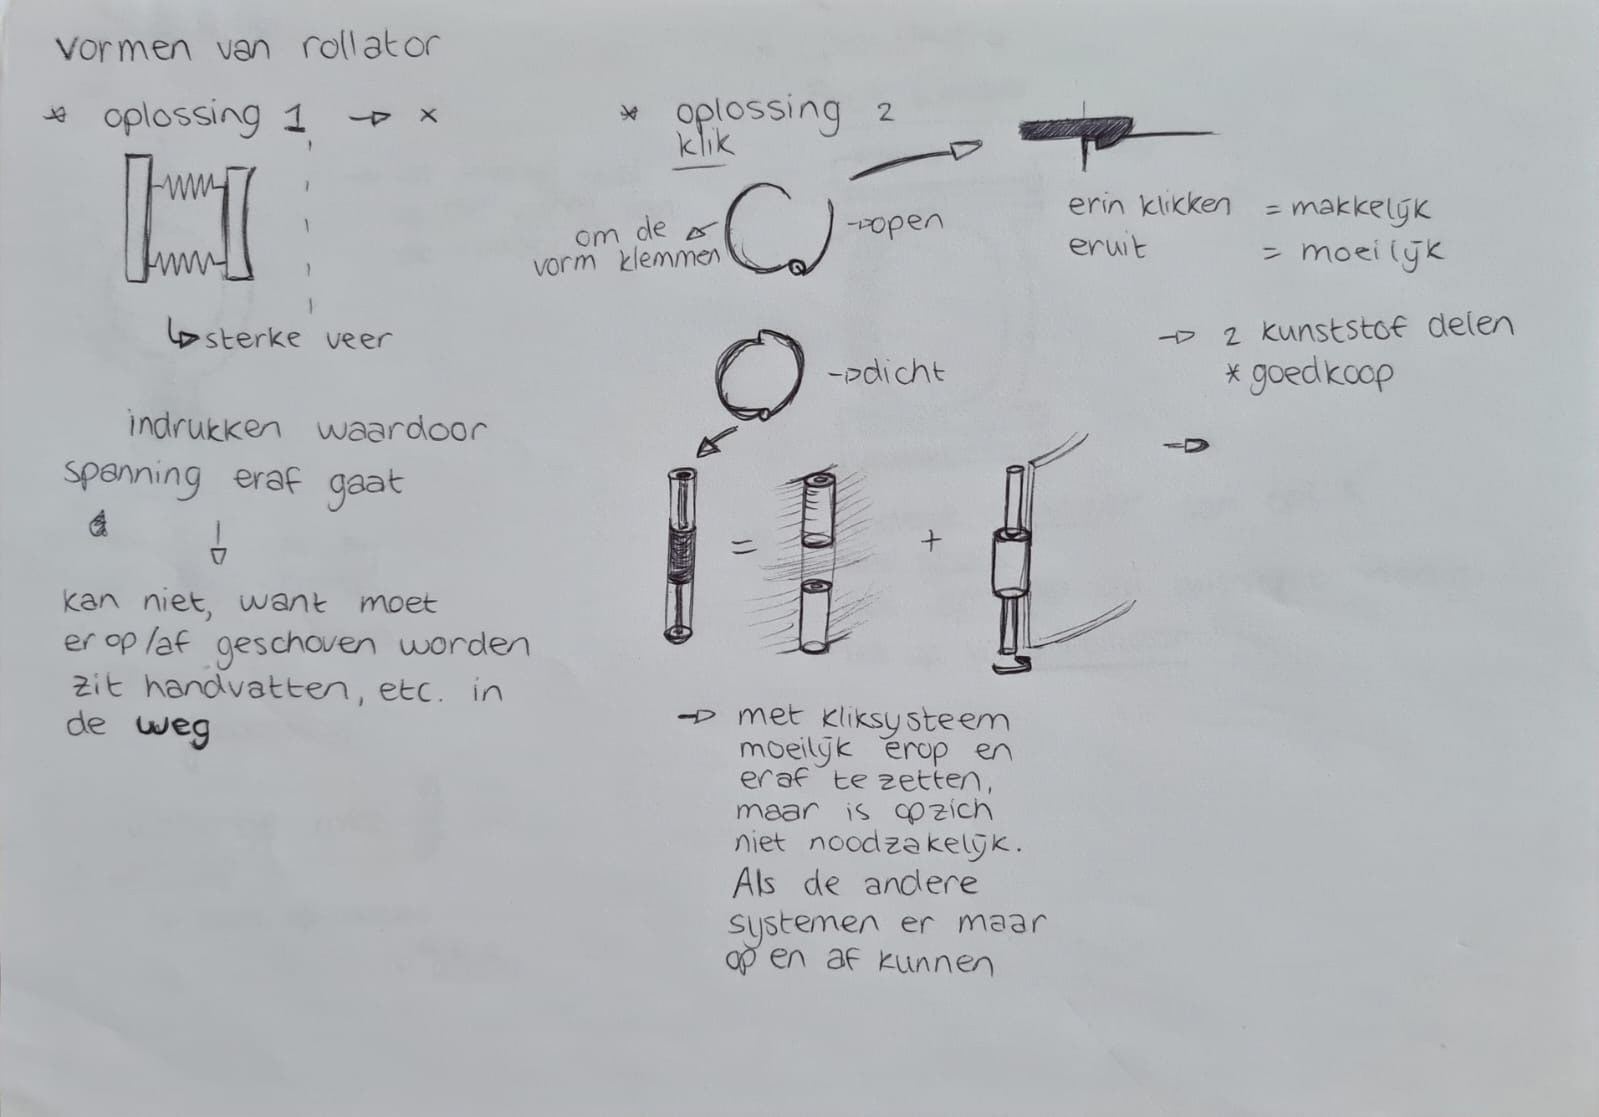 vormen van rollator
* oplossing 1 → x
↳ sterke veer
indrukken waardoor
spanning eraf gaat
↓
kan niet, want moet
er op/af geschoven worden
zit handvatten, etc. in
de weg
* oplossing 2
klik
om de
vorm klemmen
→ open
→ dicht
= +
→ met kliksysteem
moeilijk erop en
eraf te zetten,
maar is opzich
niet noodzakelijk.
Als de andere
systemen er maar
op en af kunnen
erin klikken = makkelijk
eruit = moeilijk
→ 2 kunststof delen
* goedkoop
→